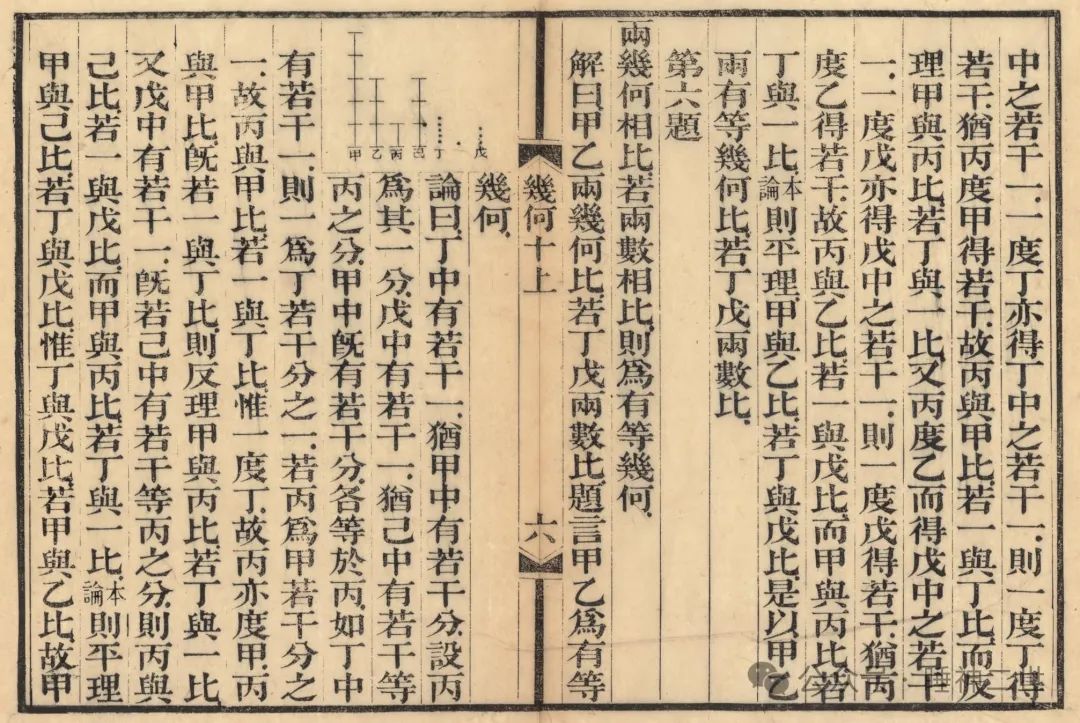 中之若干一一度丁亦得丁中之若干一則一度丁得
若干猶丙度甲得若干故丙與甲比若一與丁比而反
理甲與丙比若丁與一比又丙度乙而得戊中之若干
一一度戊亦得戊中之若干一則一度戊得若干猶丙
度乙得若干故丙與乙比若一與戊比而甲與丙比若
丁與一比本論則平理甲與乙比若丁與戊比是以甲乙
兩有等幾何比若丁戊兩數比
第六題
兩幾何相比若兩數相比則爲有等幾何
解曰甲乙兩幾何比若丁戊兩數比題言甲乙爲有等
幾何十上
六
幾何
戊
丁
己
丙
乙
甲
論曰丁中有若干一猶甲中有若干分設丙
爲其一分戊中有若干一猶己中有若干等
丙之分甲中旣有若干分各等於丙如丁中
有若干一則一爲丁若干分之一若丙爲甲若干分之
一故丙與甲比若一與丁比惟一度丁故丙亦度甲丙
與甲比旣若一與丁比則反理甲與丙比若丁與一比
又戊中有若干一旣若己中有若干等丙之分則丙與
己比若一與戊比而甲與丙比若丁與一比本論則平理
甲與己比若丁與戊比惟丁與戊比若甲與乙比故甲
公众号